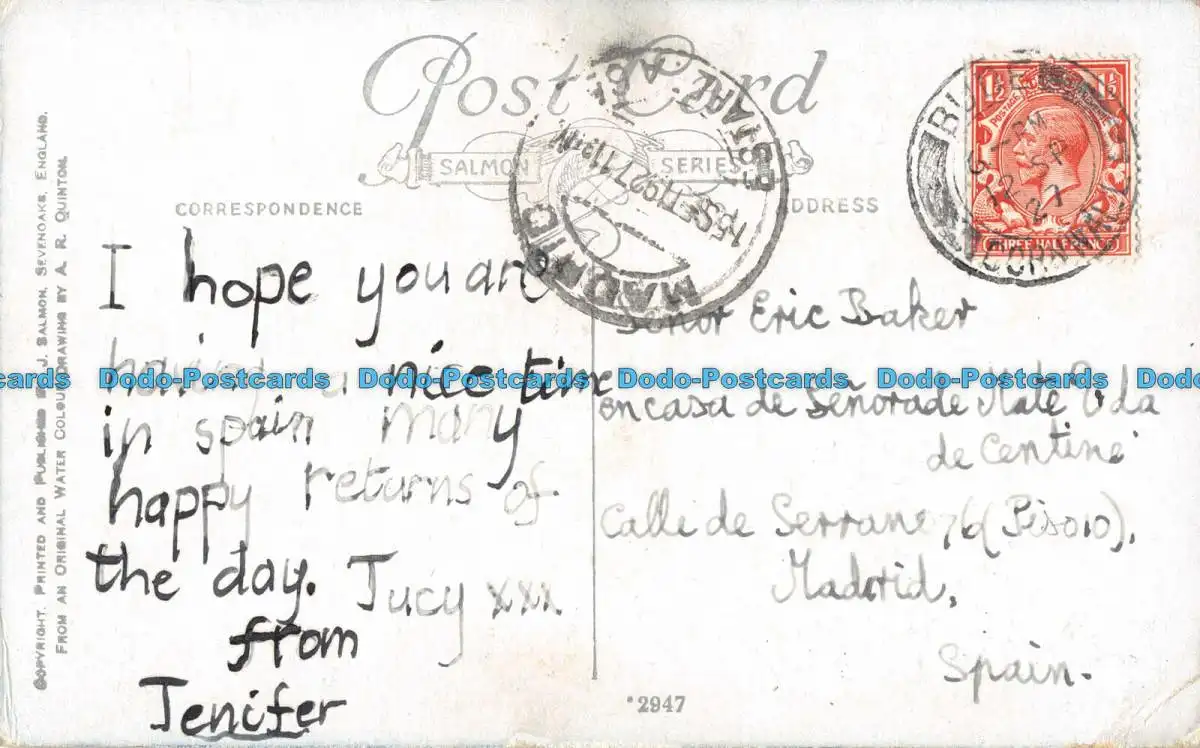 Post Card
SALMON SERIES
CORRESPONDENCE
ADDRESS
COPYRIGHT. PRINTED AND PUBLISHED BY J. SALMON, SEVENOAKS, ENGLAND.
FROM AN ORIGINAL WATER COLOUR DRAWING BY A. R. QUINTON.
I hope you are
having a nice time
in spain many
happy returns of
the day. Jucy xxx
from
Jenifer
Señor Eric Baker
en casa de Señora de
de Centine
Calle de Serrano 76 (Piso 10),
Madrid,
Spain.
*2947
MADRID
15 SET 927 11
BUDE
CORNWALL
PM
SP
27
1½ 1½
POSTAGE
THREE HALFPENCE
Dodo-Postcards Dodo-Postcards Dodo-Postcards Dodo-Postcards Dodo-Postcards